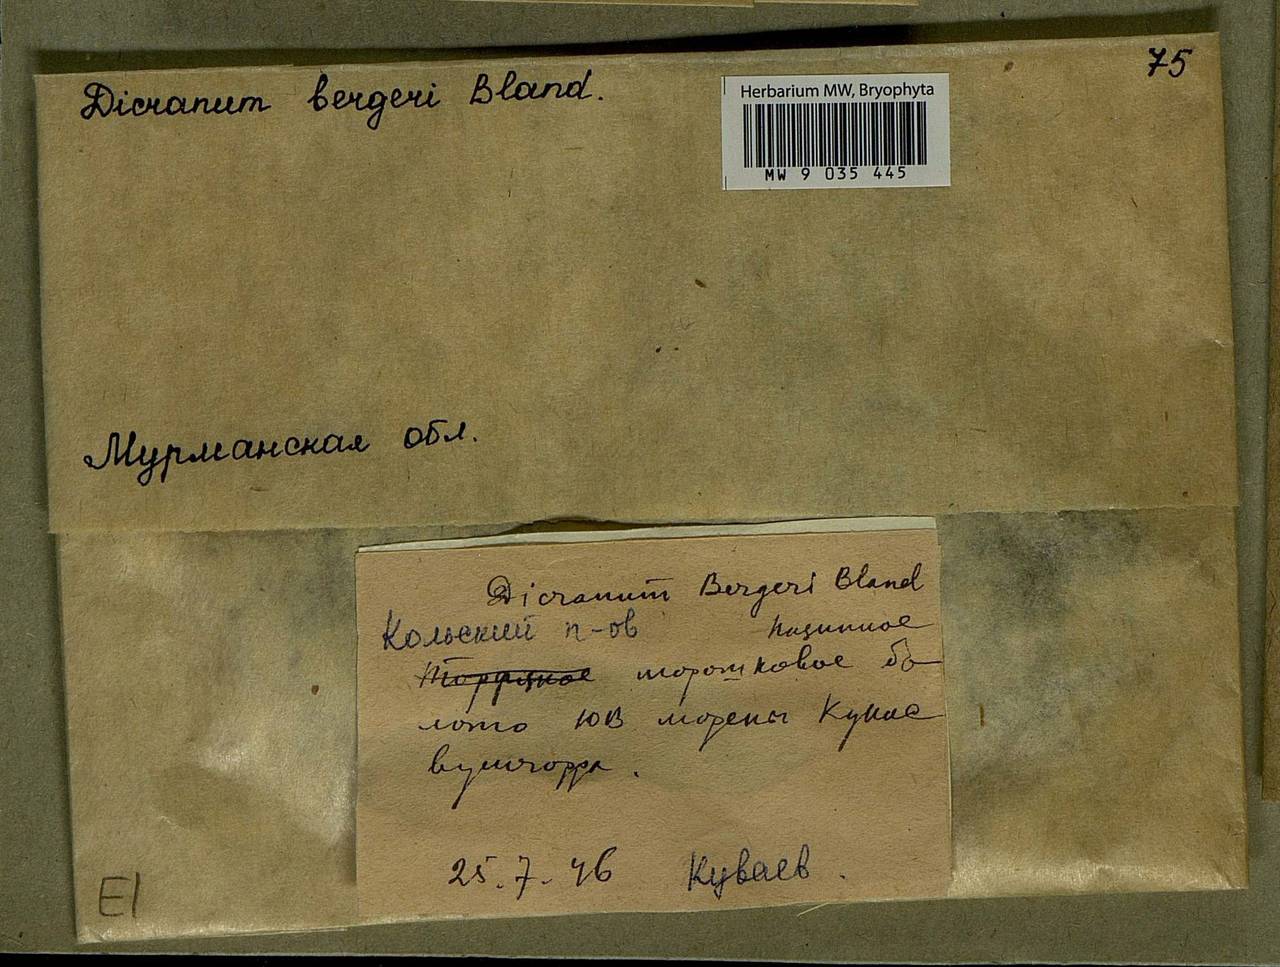 75
Dicranum bergeri Bland.
Herbarium MW, Bryophyta
MW 9 035 445
Мурманская обл.
Dicranum Bergeri Bland
Кольский п-ов
морошковое бо
лото ЮВ морены Кукис
вумчорра.
25.7.46 Куваев.
E1